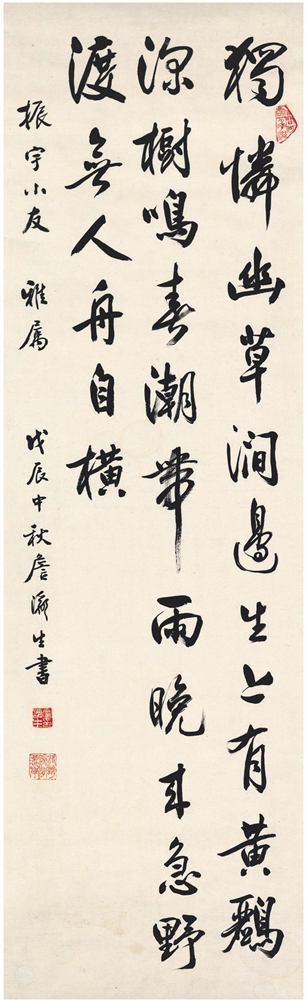 獨憐幽草澗邊生上有黃鸝
深樹鳴春潮帶雨晚來急野
渡無人舟自橫
振宇小友 雅屬 戊辰中秋詹澂生書